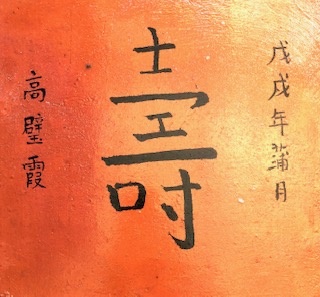 戊戌年蒲月
壽
高璧霞